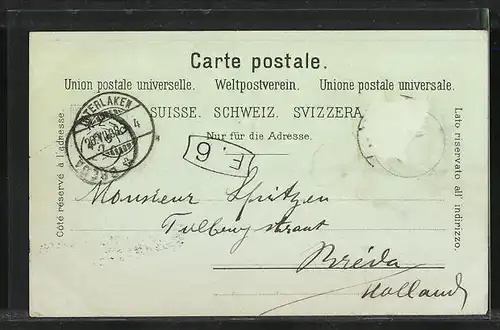 Carte postale.
Union postale universelle. Weltpostverein. Unione postale universale.
SUISSE. SCHWEIZ. SVIZZERA.
Nur für die Adresse.
Côté réservé à l'adresse.
Lato riservato all' indirizzo.
INTERLAKEN
4
BREDA
F. 6
Monsieur
Bréda
Holland